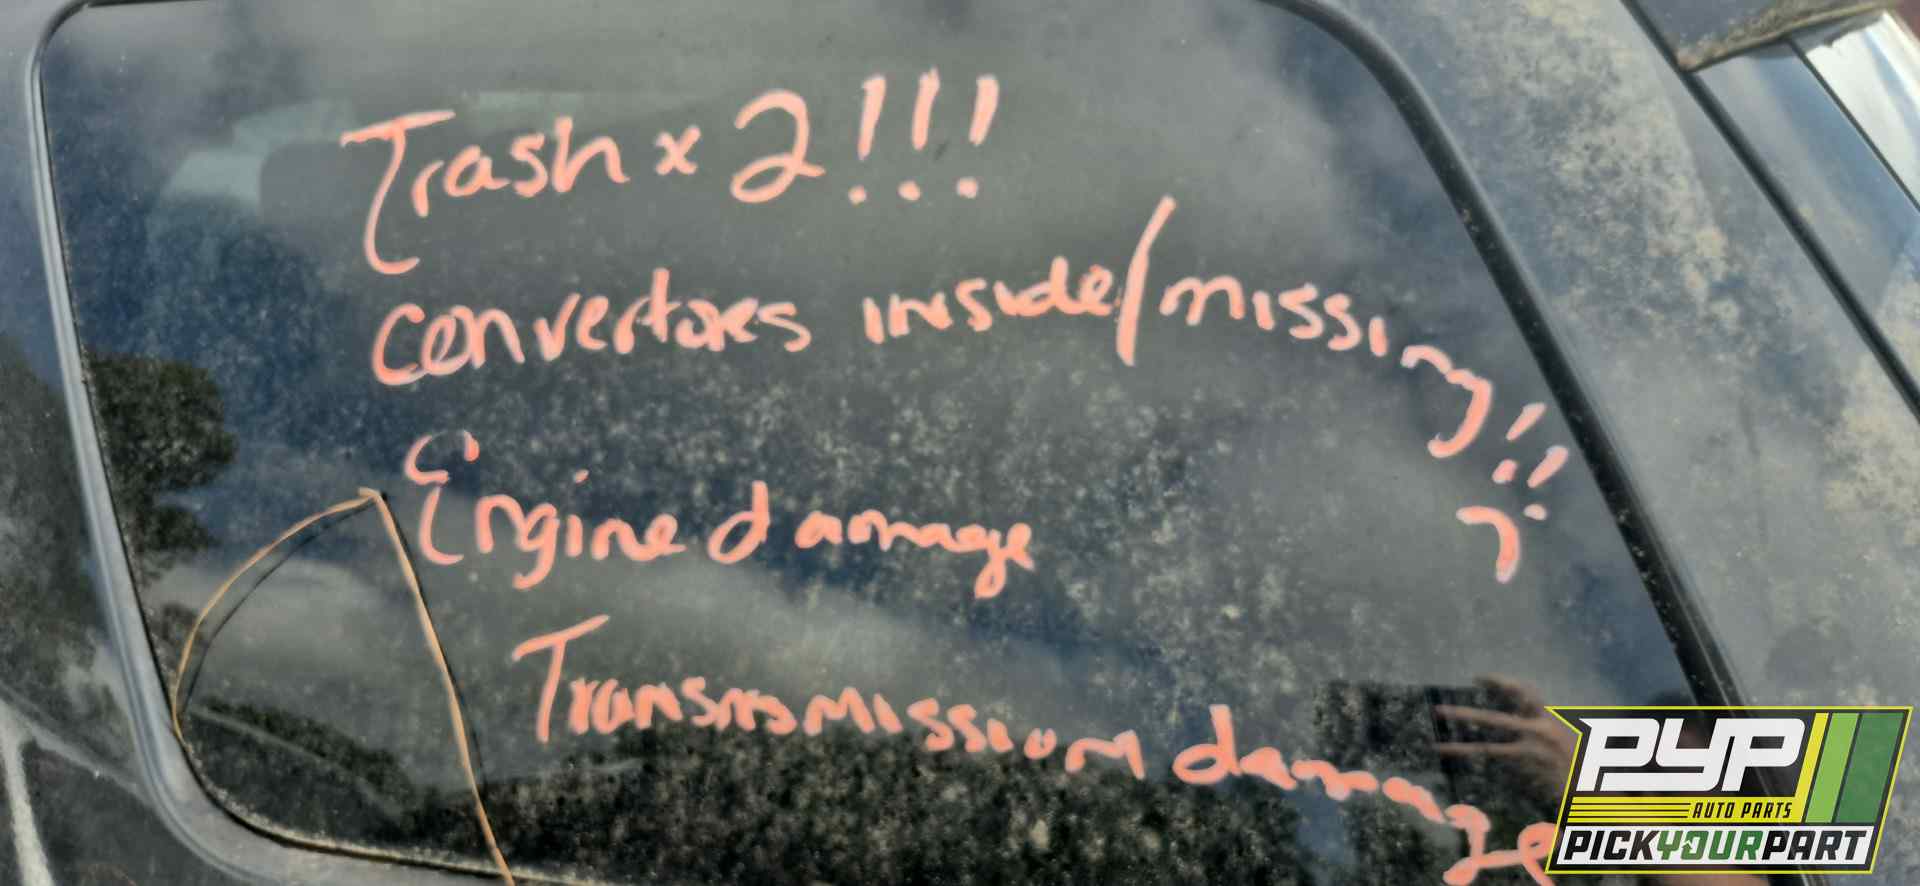 Trash x 2!!!
convertors inside/missing!!
Engine damage
Transmission damage
PYP
AUTO PARTS
PICKYOURPART